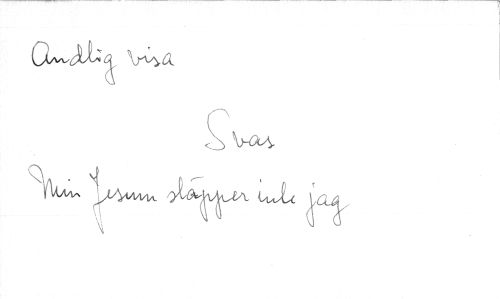 Andlig visa
Svas
Min Jesum släpper inte jag